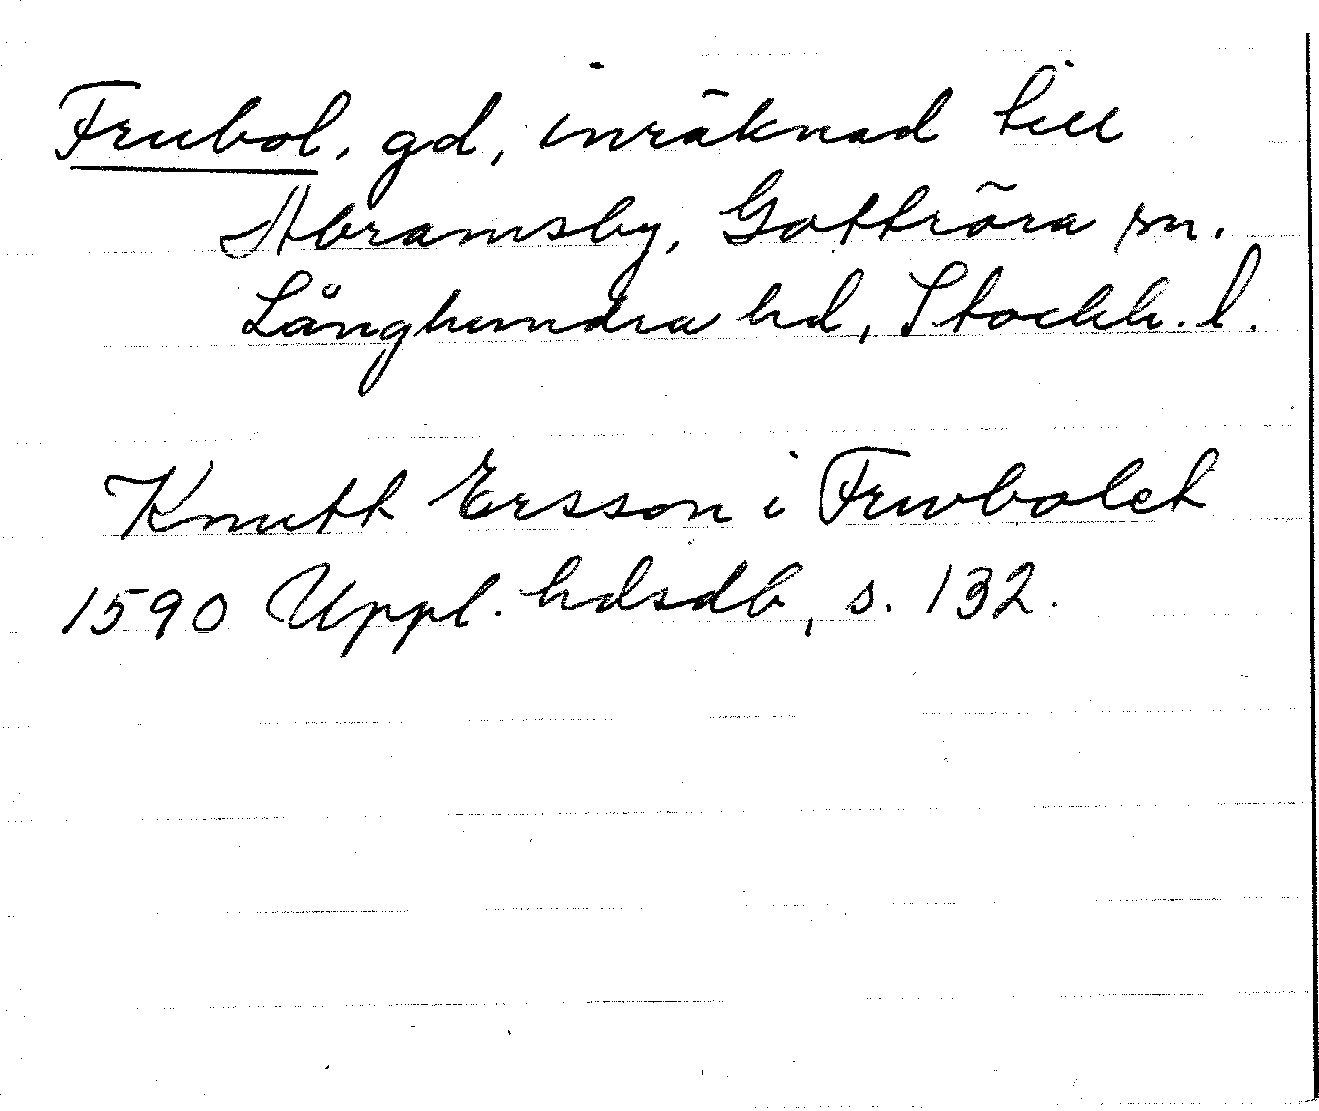 Frubol, gd, inräknad till
Abramsby, Gottröra sn.
Långhundra hd, Stockh. l.
Knutt Ersson i Frwbolet
1590 Uppl. hdsdb, s. 132.